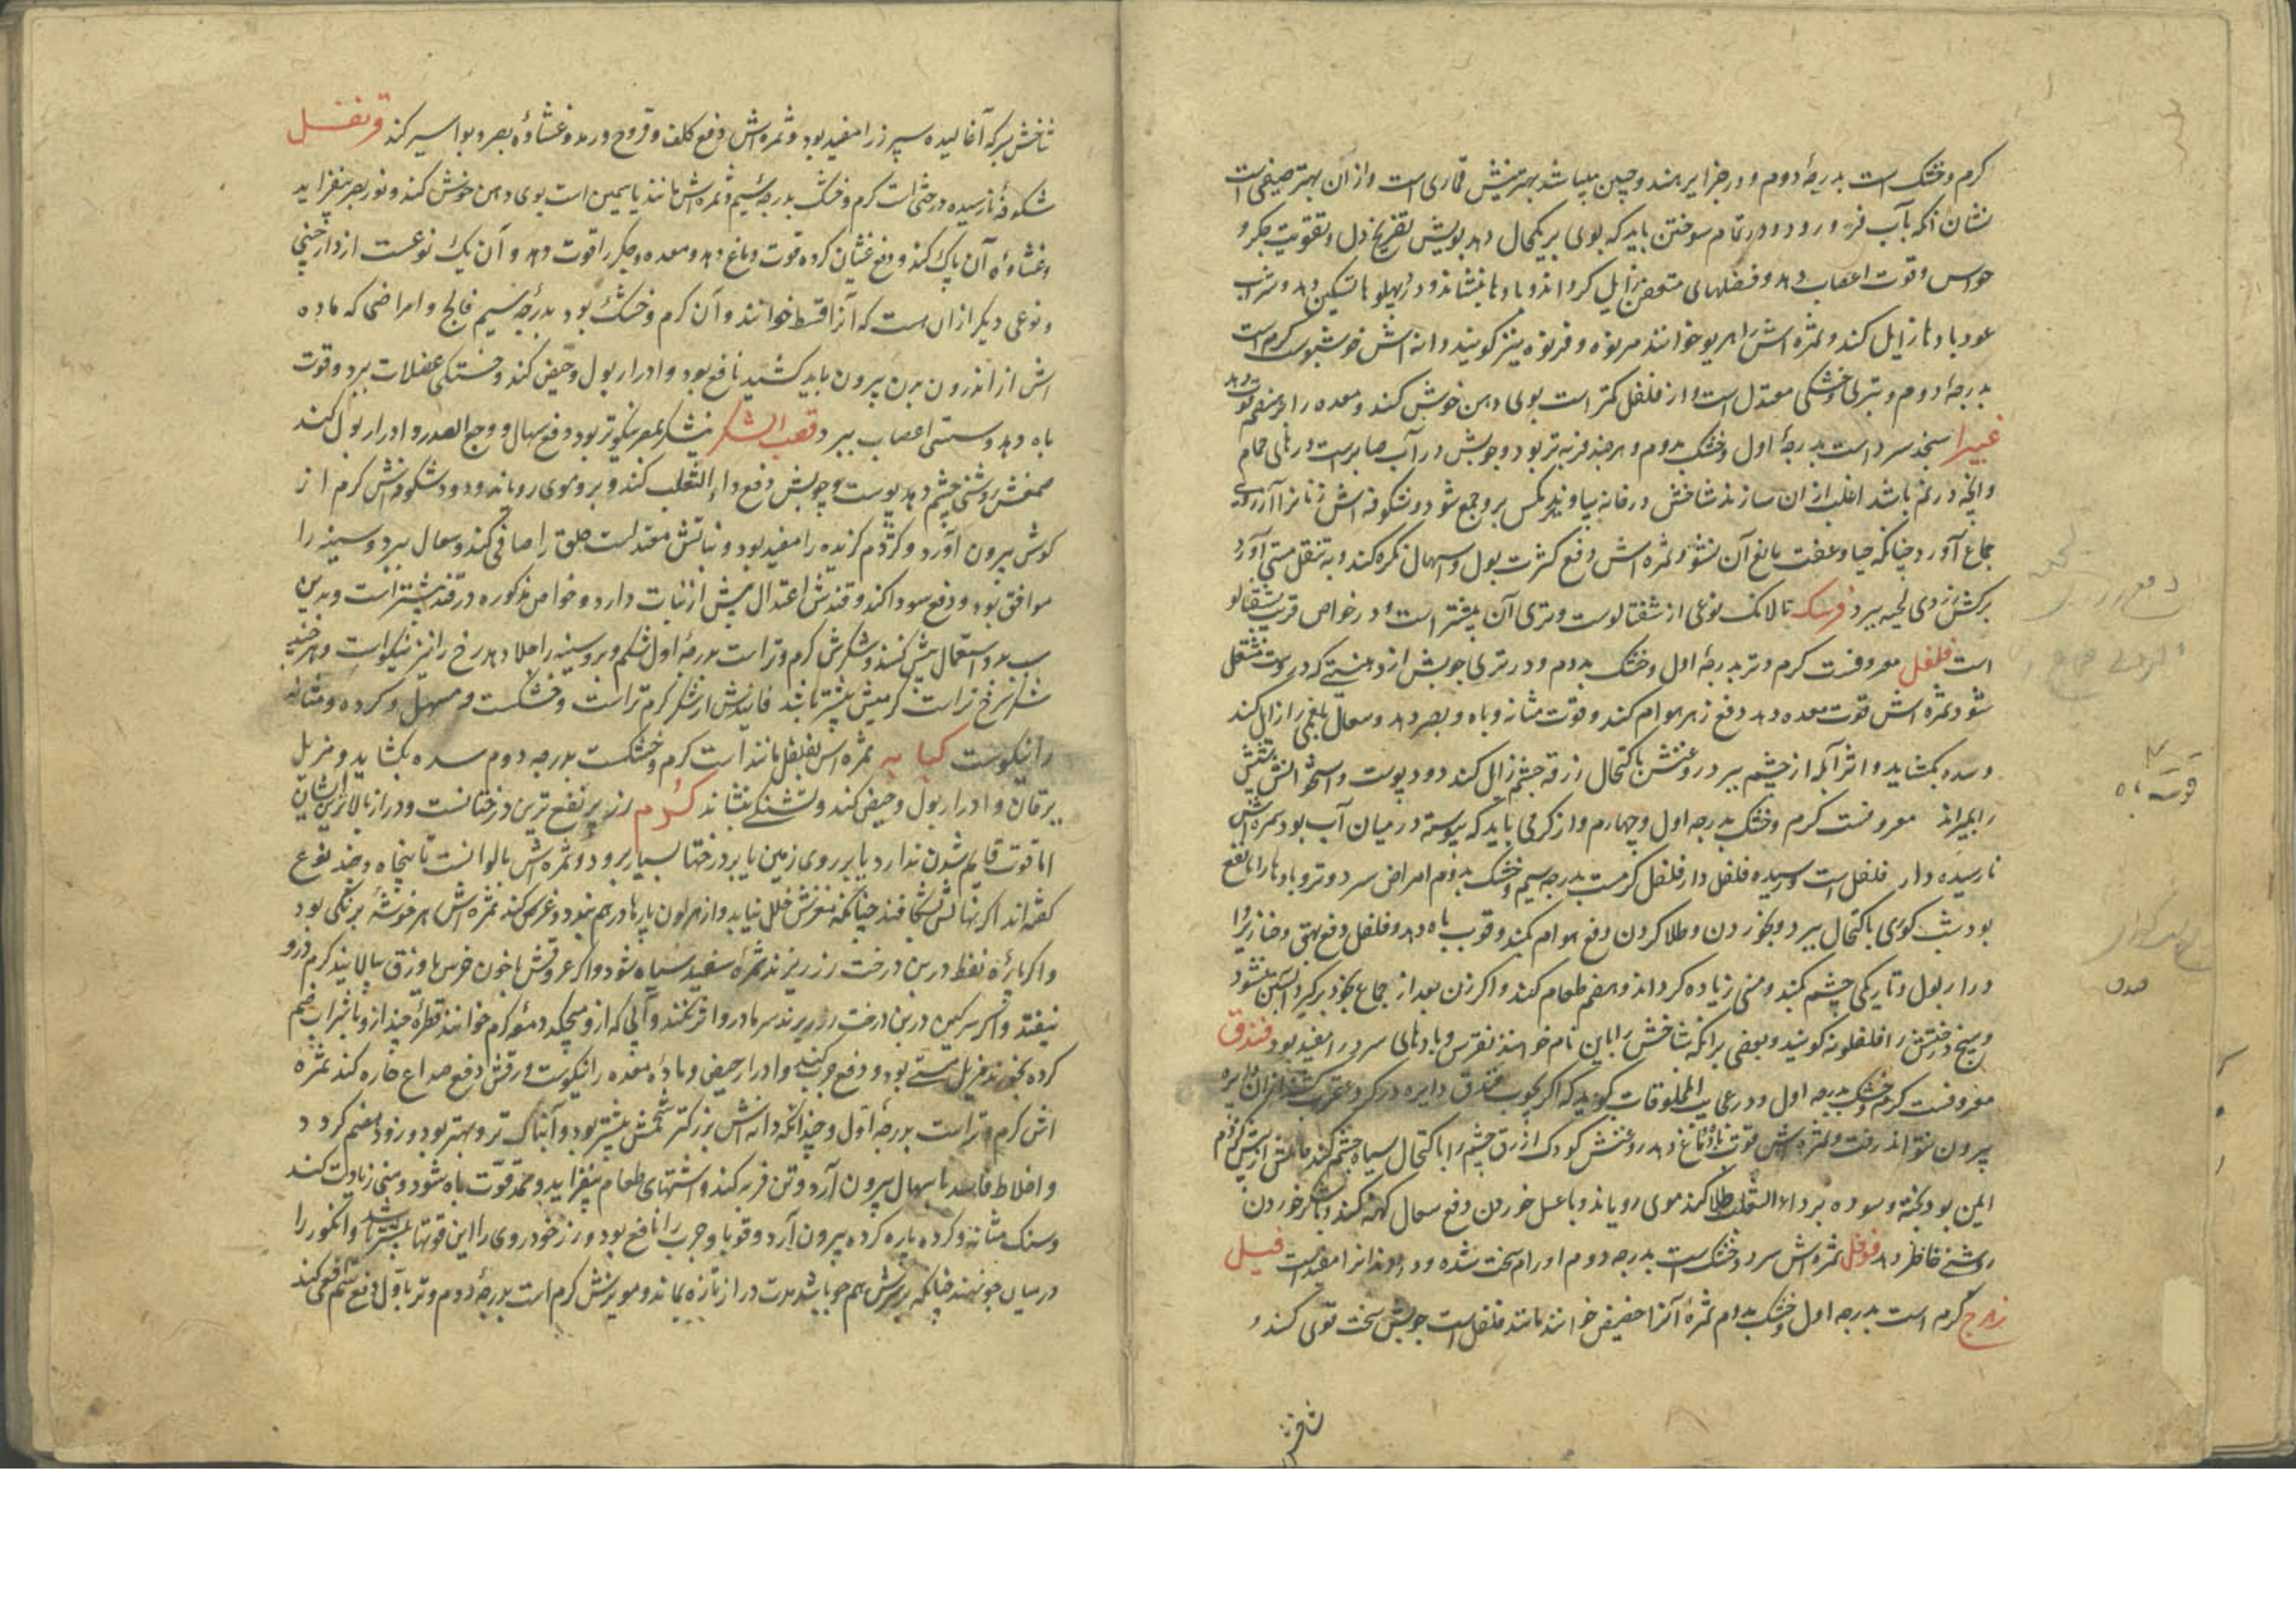 گرم و خشک است بدرجهٔ دوم و در جزایر هند و چین میباشد بهترینش قماری است و از آن بهتر صنفی است
نشان آنکه بآب فرو رود و در تمام سوختن باید که بوی بر یکحال دهد بویش تفریح دل و تقویت جگر و
حواس و قوت اعصاب دهد و فضلهای متعفن زایل گرداند و بادها بنشاند و درد پهلوها تسکین دهد و شرب
عود بادها زایل کند و ثمره اش را هریو خوانند هرنوه و قرنوه نیز گویند دانه اش خوشبوست گرم است
بدرجهٔ دوم و بتری و خشکی معتدل است و از فلفل کمتر است بوی دهن خوش کند و معده را هضم قوت دهد
غبیرا سنجد سرد است بدرجهٔ اول و خشک بدوم و هر چند فربه تر بود و چوبش در آب صابر است درهای حمام
و آنچه در نم باشد اغلب از ان سازند شاخش در خانه بیاویزند مگس برو جمع شود و شکوفه اش زنانرا آرزوی
جماع آورد چنانکه حیا و عفت مانع آن نشود و ثمره اش دفع کثرت بول و اسهال کند و بتنقل مستی آورد
برگش زردی لحیه ببرد فرسک بالانک نوعی از شفتالوست و تری آن بیشتر است و در خواص قریب شفتالو
است فلفل معروفست گرم و تر بدرجهٔ اول و خشک بدوم و در تری چوبش از دهنیتی که دروست مشتعل
شود ثمره اش قوت معده دهد دفع زهر هوام کند و قوت مثانه و باه و بصر دهد و سعال بلغمی را زایل کند
و سده بگشاید و اثر آبله از چشم ببرد روغنش باکتحال زرقه چشم زایل کند دود پوست و استخوانش
را بمیراند معروفست گرم و خشک بدرجه اول و چهارم و از گرمی باید که پیوسته در میان آب بود ثمره اش
نارسیده دار فلفل است و رسیده فلفل دار فلفل گرمست بدرجه سیم و خشک بدوم امراض سرد و تر و بادها را نافع
بود شب کوری باکتحال ببرد و بخوردن و طلا کردن دفع هوام کند و قوت باه دهد و فلفل دفع بهق و خنازیر و
درار بول و تاریکی چشم کند و منی زیاده گرداند و هضم طعام کند و اگر زن بعد از جماع بخود برگیرد آبستن نشود
و بیخ درختش را فلفلمونه گویند و بعضی برانکه شاخش را باین نام خوانند نقرس و بادهای سرد را مفید بود فندق
معروفست گرم و خشک بدرجه اول و در عجایب المخلوقات گوید که اگر بچوب فندق دایره در گرد عقرب کشند از ان دایره
بیرون نتواند رفت و ثمره اش قوت دماغ دهد روغنش کودک ازرق چشم را باکتحال سیاه چشم کند حاملش از نیش کژدم
ایمن بود پخته و سوده بر داء الثعلب طلا کنند موی رویاند و با عسل خوردن دفع سعال کهنه کند و با شکر خوردن
روشنی خاطر دهد فوفل ثمره اش سرد و خشک است بدرجه دوم اورام سخت شده و درد دندانرا مفید است فیل
زهرج گرم است بدرجه اول و خشک بدوم ثمرهٔ آنرا حضیض خوانند مانند فلفل است چوبش سخت قوی کند و
قوسه
صدق
شاخش
شاخش بسرکه آغالیده سپرز را مفید بود و ثمره اش دفع کلف و قروح و رمد و غشاوهٔ بصر و بواسیر کند قرنفل
شکوفهٔ نارسیده درختی است گرم و خشک بدرجهٔ سیم و ثمره اش مانند یاسمین است بوی دهن خوش کند و نور بصر بیفزاید
و غشاوهٔ آن پاک کند و دفع غشیان کرده قوت دماغ دهد و معده و جگر را قوت دهد و آن یک نوعست از دارچینی
و نوعی دیگر ازان هست که آنرا قسط خوانند و آن گرم و خشک بود بدرجه سیم فالج و امراضی که ماده
اش از اندرون بدن بیرون باید کشید نافع بود و ادرار بول و حیض کند و خستگی عضلات ببرد و قوت
باه دهد و سستی اعصاب ببرد قصب السکر نیشکر بمصر نیکوتر بود دفع سهال و وجع الصدر و ادرار بول کند
صمغش روشنی چشم دهد پوست و چوبش دفع داء الثعلب کند و برو موی رویاند و دود شکوفه اش کرم از
گوش بیرون آورد و کژدم گزیده را مفید بود و نباتش معتدلست حلق را صافی کند و سعال ببرد و سینه را
موافق بود و دفع سودا کند و قندش اعتدال بیش از نبات دارد و خواص مذکوره در قند بیشتر است و بدین
سبب بدو استعمال بیش کنند و شکرش گرم و تر است بدرجهٔ اول شکم و برو سینه را جلا دهد رخ را نیز نیکو است و هر چند
شکر سرخ تر است گرمیش بیشتر باشد فانیذش از شکر گرم تر است و خشکست و مسهل و گرده و مثانه
را نیکوست کبابه ثمره اش بفلفل مانند است گرم و خشکست بدرجه دوم سده بگشاید و مزیل
یرقان و ادرار بول و حیض کند و تشنگی بنشاند کرم رز پر نفع ترین درختانست و دراز بالا ترین ایشان
اما قوت قایم شدن ندارد یا بر روی زمین یا بر درختها بسیار برود و ثمره اش بالوانست تا پنجاه و چند نوع
گفته اند اگر نهالش بشکافند چنانکه مغزش خلل نیابد و از هر لون پارها در هم بندد و غرس کند ثمره اش هر خوشهٔ برنگی بود
و اگر پارهٔ نفط در بن درخت رز ریزند ثمرهٔ سفید سیاه شود و اگر عروقش با خون خرس یا وزق بیالایند کرم درو
نیفتد و اگر سرگین در بن درخت رز ریزند سرما درو اثر نکند و آبی که ازو میچکد دمعه کرم خوانند قطرهٔ چند ازو با شراب ضم
کرده بخورند مزیل مستی بود و دفع جرب کند و ادرار حیض و مادهٔ معده را نیکوست ورقش دفع صداع حاره کند ثمره
اش گرم و تر است بدرجهٔ اول و چندانکه دانه اش بزرگتر شحمش بیشتر بود و آبناک تر و بهتر بود و زود هضم گردد
و اخلاط فاسد باسهال بیرون آرد و تن فربه کند و اشتهای طعام بیفزاید و ممد قوت باه شود و منی زیادت کند
و سنگ مثانه و گرده پاره کرده بیرون آرد و قوبا و جرب را نافع بود و رز خودروی را این قوتها بیشتر باشد و انگور را
در میان جو نهند چنانکه بر سرش هم جو باشد مدت دراز تازه بماند و مویزش گرم است بدرجهٔ دوم و تر باول دفع سم افعی کند